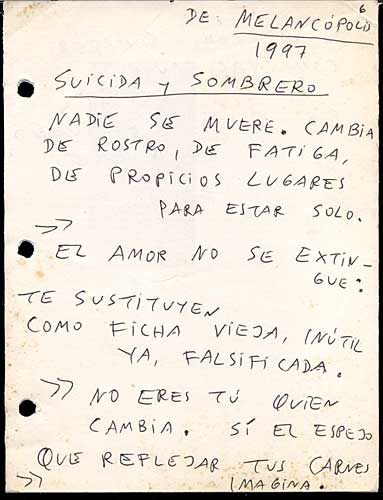 6
DE MELANCÓPOLIS
1997
SUICIDA Y SOMBRERO
NADIE SE MUERE. CAMBIA
DE ROSTRO, DE FATIGA,
DE PROPICIOS LUGARES
PARA ESTAR SOLO.
>>
EL AMOR NO SE EXTIN-
GUE:
TE SUSTITUYEN
COMO FICHA VIEJA, INÚTIL
YA, FALSIFICADA.
>> NO ERES TÚ QUIEN
CAMBIA. SÍ EL ESPEJO
QUE REFLEJAR TUS CARNES
>> IMAGINA.